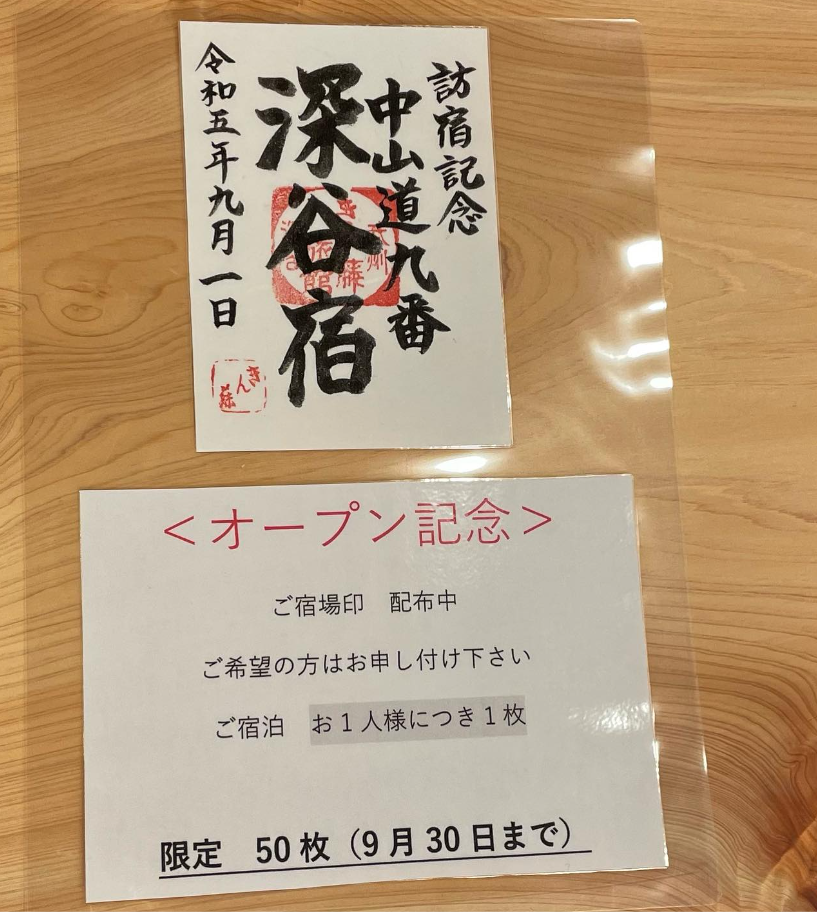 訪宿記念
中山道九番
深谷宿
令和五年九月一日
きん藤
＜オープン記念＞
ご宿場印　配布中
ご希望の方はお申し付け下さい
ご宿泊　お１人様につき１枚
限定　50枚（9月30日まで）